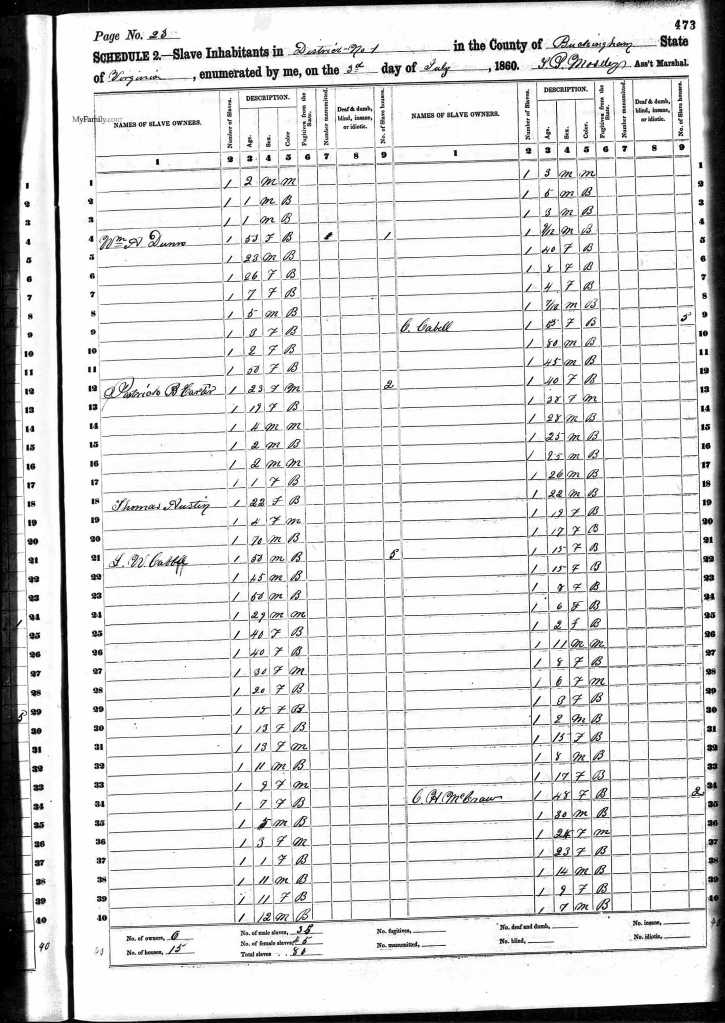 473
Page No. 23
SCHEDULE 2.—Slave Inhabitants in District No 1 in the County of Buckingham State
of Virginia, enumerated by me, on the 3d day of July, 1860. Ass't Marshal.
MyFamily.com
NAMES OF SLAVE OWNERS. Number of Slaves. DESCRIPTION. Age. Sex. Color Fugitives from the State. Number manumitted. Deaf & dumb, blind, insane, or idiotic. No. of Slave houses. NAMES OF SLAVE OWNERS. Number of Slaves. DESCRIPTION. Age. Sex. Color. Fugitives from the State. Number manumitted. Deaf & dumb, blind, insane, or idiotic. No. of Slave houses.
1 2 3 4 5 6 7 8 9 1 2 3 4 5 6 7 8 9
1 1 2 m m 1 3 m m 1
2 1 1 m B 1 5 m B 2
3 1 1 m B 1 3 m B 3
4 Wm A Dunn 1 53 F B 1 1 m B 4
5 1 23 m B 1 40 F B 5
6 1 26 F B 1 8 F B 6
7 1 7 F B 1 4 F B 7
8 1 5 m B 1 m B 8
9 1 3 F B C. Cabell 1 F B 5 9
10 1 2 F B 1 80 m B 10
11 1 50 F B 1 45 m B 11
12 B Carter 1 23 F m 2 1 40 F B 12
13 1 19 F B 1 38 F m 13
14 1 4 m m 1 28 m B 14
15 1 2 m B 1 25 m B 15
16 1 2 m m 1 25 m B 16
17 1 1 F B 1 26 m B 17
18 Thomas Austin 1 22 F B 1 22 m B 18
19 1 4 F m 1 19 F B 19
20 1 70 m B 1 17 F B 20
21 W. Cabell 1 50 m B 5 1 15 F B 21
22 1 45 m B 1 15 F B 22
23 1 50 m B 1 8 F B 23
24 1 29 m m 1 6 F B 24
25 1 40 F B 1 2 F B 25
26 1 40 F B 1 11 m m 26
27 1 30 F m 1 8 F B 27
28 1 20 F B 1 6 F m 28
29 1 15 F B 1 3 F B 29
30 1 13 F B 1 2 m B 30
31 1 13 F m 1 15 F B 31
32 1 11 m B 1 8 m B 32
33 1 9 F m 1 17 F B 33
34 1 7 F B C. H. McCraw 1 48 F B 2 34
35 1 5 m B 1 30 m B 35
36 1 3 F m 1 24 F m 36
37 1 1 F B 1 23 F B 37
38 1 11 m B 1 14 m B 38
39 1 11 F B 1 9 F B 39
40 1 12 m B 1 7 m B 40
No. of owners, 6 No. of male slaves, No. fugitives, No. deaf and dumb, No. insane,
No. of houses, 15 No. of female slaves, 45 No. manumitted, No. blind, No. idiotic,
Total slaves 80